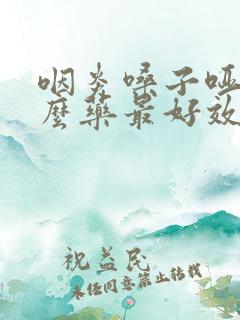 咽炎嗓子哑
么药最好效
祝益民
未经同意禁止转载